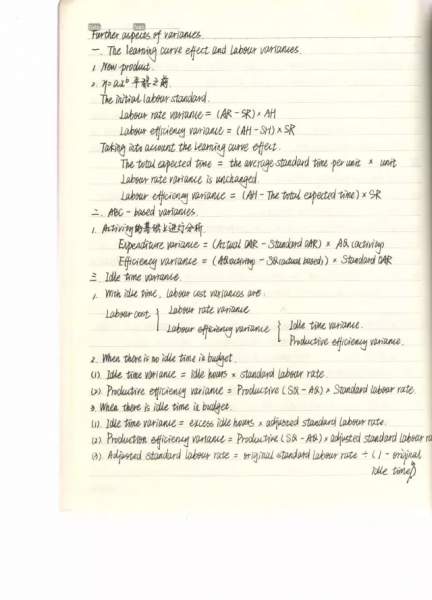 Further aspects of variances
一. The learning curve effect and Labour variances.
1. New product.
2. y=axᵇ 平稳之前
The initial labour standard.
Labour rate variance = (AR - SR) × AH
Labour efficiency variance = (AH - SH) × SR
Taking into account the learning curve effect.
The total expected time = the average standard time per unit × unit
Labour rate variance is unchanged.
Labour efficiency variance = (AH - The total expected time) × SR
二. ABC - based variances.
1. Activity的基础上进行分析.
Expenditure variance = (Actual OAR - Standard OAR) × AQ (activity)
Efficiency variance = (AQ activity - SQ (actual based)) × Standard OAR
三. Idle time variance.
1. With idle time, labour cost variances are:
Labour cost { Labour rate variance
Labour efficiency variance { Idle time variance.
Productive efficiency variance.
2. When there is no idle time in budget.
(1). Idle time variance = idle hours × standard labour rate.
(2). Productive efficiency variance = Productive (SQ - AQ) × Standard labour rate.
3. When there is idle time in budget.
(1). Idle time variance = excess idle hours × adjusted standard labour rate.
(2). Production efficiency variance = Productive (SQ - AQ) × adjusted standard labour ra
(3). Adjusted standard labour rate = original standard labour rate ÷ (1 - original
idle time%)